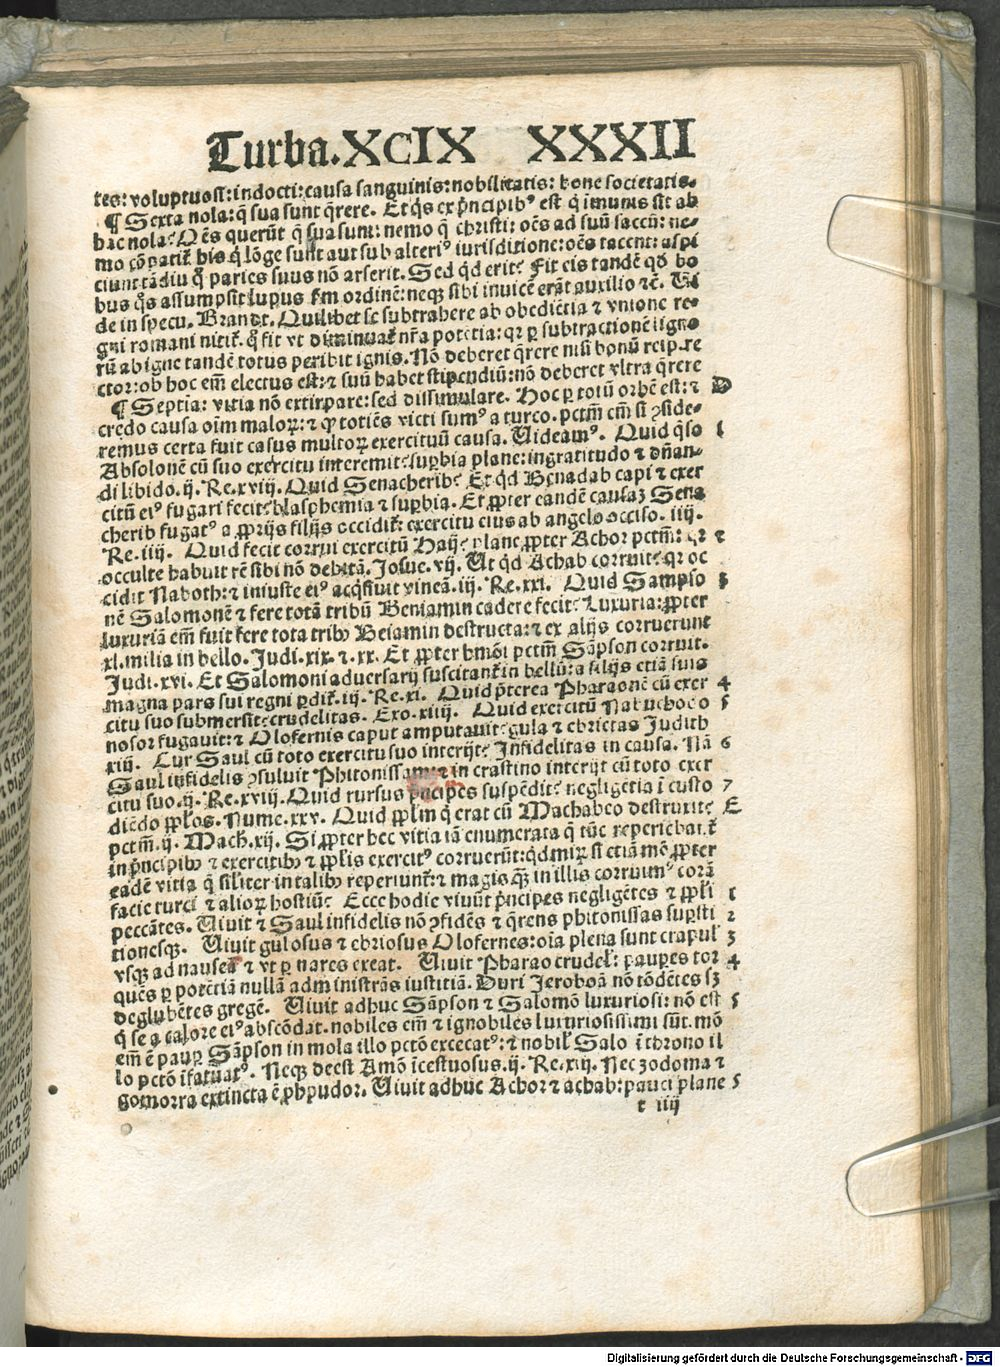 Turba.XCIX XXXII
tes: voluptuosi: indocti: causa sanguinis: nobilitatis: bone societatis.
¶ Sexta nola: q̃ sua sunt q̃rere. Et q̃s ex p̃ncipibꝰ est q̃ imunis sit ab
hac nola? Oẽs querũt q̃ sua sunt: nemo q̃ christi: oẽs ad suũ saccũ: ne-
mo cõpatit̃ his q̃ lõge sunt aut sub alteriꝰ iurisditione: oẽs tacent: aspi
ciunt tãdiu q̃ paries suus nõ arserit. Sed q̃d erit? Fit eis tandẽ qđ bo
bus q̃s assumpsit lupus ẽm ordinẽ: neqꝫ sibi inuicẽ erãt auxilio ⁊c̃. Vi
de in specu. Brandt. Quilibet se subtrahere ab obediẽtia ⁊ vnione re-
gni romani nitit̃. q̃ fit vt diminuat̃ nr̃a potẽtia: qꝛ ꝑ subtractionẽ ligno
rũ ab igne tandẽ totus peribit ignis. Nõ deberet q̃rere nisi bonũ reip. re
ctor: ob hoc em̃ electus est: ⁊ suũ habet stipendiũ: nõ deberet vltra q̃rere
¶ Septia: vitia nõ extirpare: sed dissimulare. Hoc ꝑ totũ orbẽ est: ⁊ D
credo causa oim̃ maloꝝ: ⁊ ꝙ totiẽs victi sumꝰ a turco. pctm̃ em̃ si ꝯside-
remus certa fuit casus multoꝝ exercituũ causa. Uideamꝰ. Quid q̃so 1
Absolonẽ cũ suo exercitu interemit? suꝑbia plane: ingratitudo ⁊ dñan-
di libido. ij. Re. xviij. Quid Senacherib? Et q̃d Benadab capi ⁊ exer
citũ eiꝰ fugari fecit? blasphemia ⁊ suꝑbia. Et ꝓpter eandẽ causaꝫ Sena
cherib fugatꝰ a ꝓprijs filijs occidit̃: exercitu eius ab angelo occiso. iiij.
Re. iiij. Quid fecit corrui exercitũ Haij? plane ꝓpter Achor pctm̃: qꝛ 2
occulte habuit rẽ sibi nõ debitã. Josue. vij. Ut q̃d Achab corruit? qꝛ oc
cidit Naboth: ⁊ iniuste eiꝰ acq̃siuit vineã. iij. Re. xxi. Quid Sampso 3
nẽ Salomonẽ ⁊ fere totã tribũ Beniamin cadere fecit? Luxuria: ꝓpter
luxuriã em̃ fuit fere tota tribꝰ Beiamin destructa: ⁊ ex alijs corruerunt
xl. milia in bello. Judi. xix. ⁊ xx. Et ꝓpter hmõi pctm̃ Sãpson corruit.
Judi. xvi. Et Salomoni aduersarij suscitant̃ in bellũ: a filijs etiã suis
magna pars sui regni ꝑdit̃. iij. Re. xi. Quid p̃terea Pharaonẽ cũ exer 4
citu suo submersit? crudelitas. Exo. xiiij. Quid exercitũ Nabuchodo 5
nosor fugauit: ⁊ Olofernis caput amputauit? gula ⁊ ebrietas Judith
xiij. Cur Saul cũ toto exercitu suo interijt? Infidelitas in causa. Nã 6
Saul infidelis ꝯsuluit Phitonissam: ⁊ in crastino interijt cũ toto exer
citu suo. ij. Re. xviij. Quid rursus p̃ncipes suspẽdit? negligẽtia ĩ custo 7
diẽdo ꝓplos. Nume. xxv. Quid ꝓplm̃ q̃ erat cũ Machabeo destruxit? E
pctm̃. ij. Mach. xij. Si ꝓpter hec vitia iã enumerata q̃ tũc reperiebat̃
in p̃ncipibꝰ ⁊ exercitibꝰ ⁊ ꝓplis exercitꝰ corruerũt: q̃d miꝝ si etiã mõ ꝓpter
eadẽ vitia q̃ silĩter in talibꝰ reperiunt̃: ⁊ magis qꝫ in illis corruimꝰ corã
facie turci ⁊ alioꝝ hostiũ? Ecce hodie viuũt p̃ncipes negligẽtes ⁊ ꝓpli 1
peccãtes. Uiuit ⁊ Saul infidelis nõ ꝯfidẽs ⁊ q̃rens phitonissas suꝑsti 2
tionesqꝫ. Uiuit gulosus ⁊ ebriosus Olofernes: oĩa plena sunt crapul̃ 3
vsqꝫ ad nauseã ⁊ vt ꝑ nares exeat. Uiuit Pharao crudel̃: pauꝑes tor 4
quẽs ꝑ potẽtiã nullã administrãs iustitiã. Duri Jeroboã nõ tõdẽtes sꝫ
deglubẽtes gregẽ. Uiuit adhuc Sãpson ⁊ Salomõ luxuriosi: nõ est 5
q̃ se a calore eiꝰ abscõdat. nobiles em̃ ⁊ ignobiles luxuriosissimi sũt. mõ
em̃ ẽ pauꝑ Sãpson in mola illo pctõ excecatꝰ: ⁊ nobil̃ Salo ĩ throno il
lo pctõ ĩfatuatꝰ. Neqꝫ deest Amõ ĩcestuosus. ij. Re. xiij. Nec zodoma ⁊
gomorra extincta ẽ ꝓhpudor. Uiuit adhuc Achor ⁊ achab: pauci plane 5
t iiij
Digitalisierung gefördert durch die Deutsche Forschungsgemeinschaft - DFG